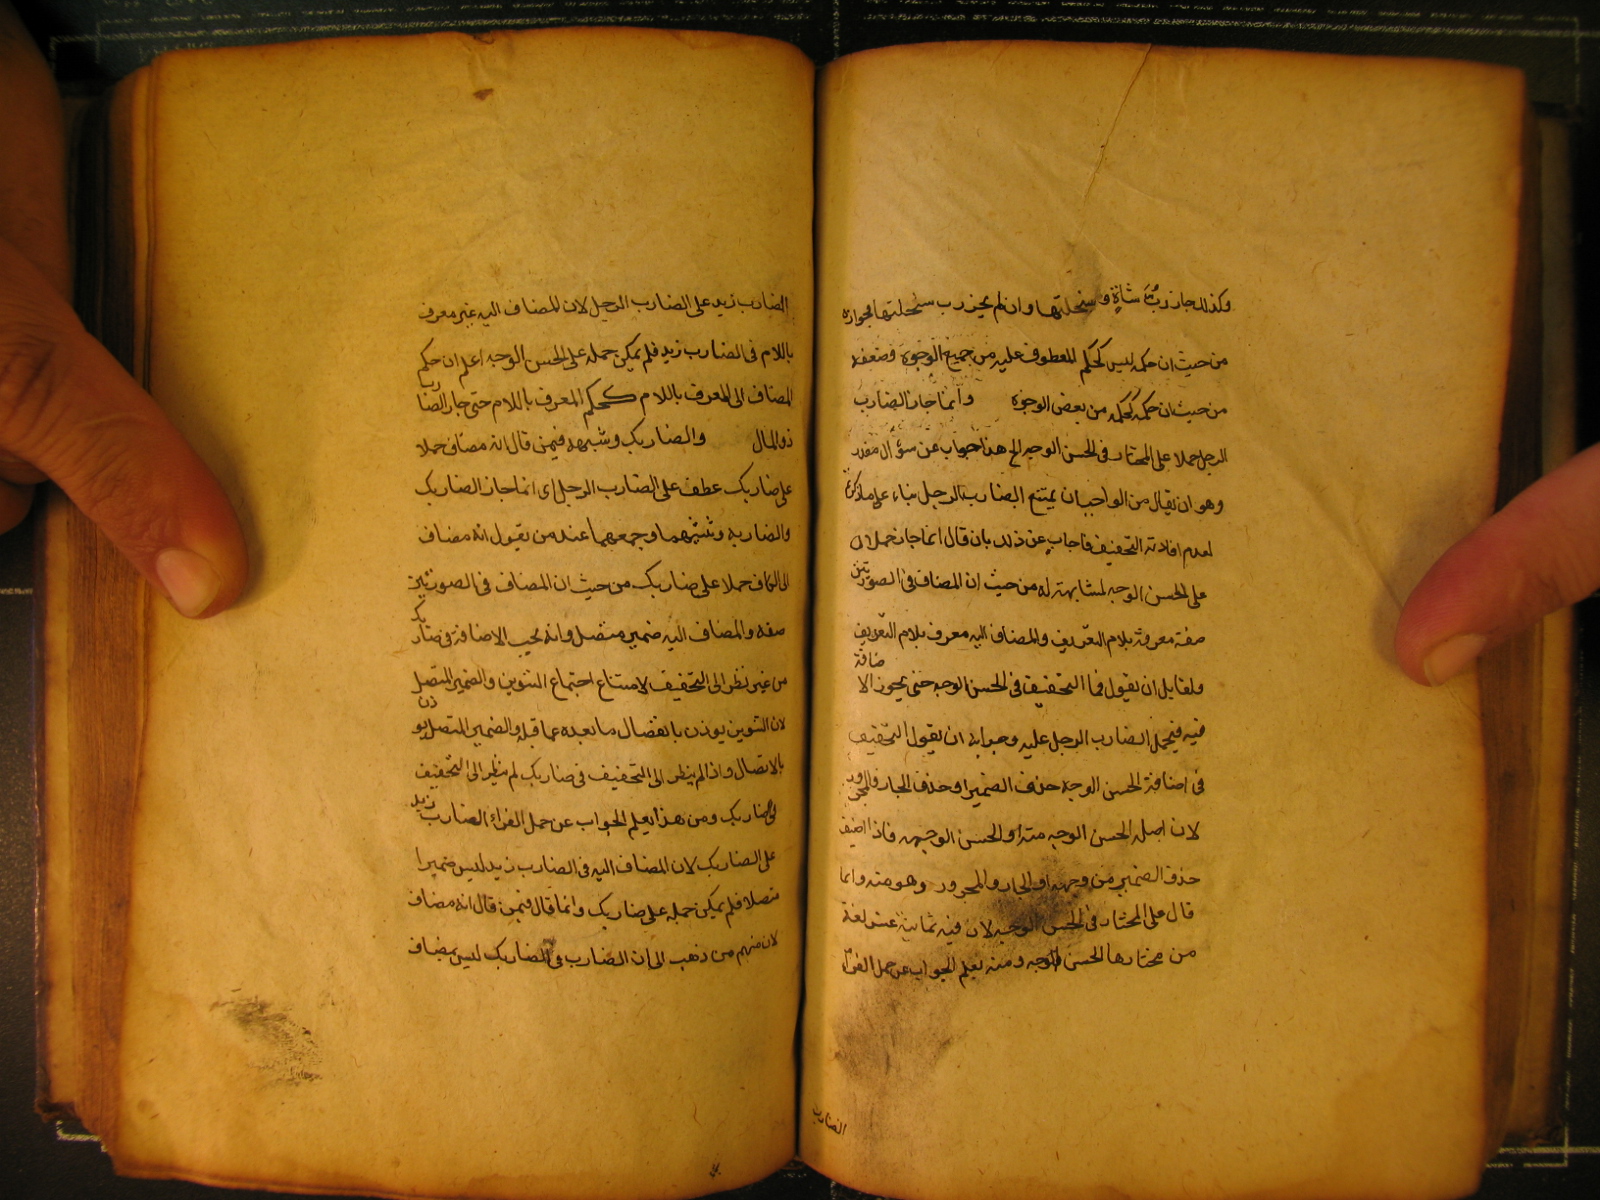 وكذلك جاز رب شاة وسخلتها وان لم يجز رب سخلتها فجوازه
من حيث ان حكمه ليس كحكم المعطوف عليه من جميع الوجوه وضعفه
من حيث ان حكمه كحكمه من بعض الوجوه وانما جاز الضارب
الرجل حملا على المختار فى الحسن الوجه الخ هذا جواب عن سؤال مقدر
وهو ان يقال من الواجب ان يمتنع الضارب الرجل بناء على ما ذكرتم
لعدم افادته التخفيف فاجاب عن ذلك بان قال انما جاز حملا له
على الحسن الوجه لمشابهته له من حيث ان المضاف فى الصورتين
صفة معرفة بلام التعريف والمضاف اليه معرف بلام التعريف
ولقايل ان يقول فما التخفيف فى الحسن الوجه حتى يجوز الاضافة
فيه فيحمل الضارب الرجل عليه وجوابه ان يقول التخفيف
فى اضافة الحسن الوجه حذف الضمير او حذف الجار والمجرور
لان اصله الحسن الوجه منه او الحسن الوجهه فاذا اضيف
حذف الضمير من وجهه او الجار والمجرور وهو منه وانما
قال على المختار فى الحسن الوجه لان فيه ثمانية عشر لغة
من مختارها الحسن الوجه ومنه يعلم الجواب عن حمل الفراء
الضارب
الضارب زيد على الضارب الرجل لان المضاف اليه غير معرف
باللام فى الضارب زيد فلم يمكن حمله على الحسن الوجه اعلم ان حكم
المضاف الى المعرف باللام كحكم المعرف باللام حتى جاز الضارب
ذو المال والضاربك وشبهه فيمن قال انه مضاف حملا
على ضاربك عطف على الضارب الرجل اى انما جاز الضاربك
والضاربه وتثنيتهما وجمعهما عند من يقول انه مضاف
الى الكاف حملا على ضاربك من حيث ان المضاف فى الصورتين
صفة والمضاف اليه ضمير متصل وانه يجب الاضافة فى ضاربك
من غير نظر الى التخفيف لامتناع اجتماع التنوين والضمير المتصل
لان التنوين يوذن بانفصال ما بعده عما قبله والضمير المتصل يوذن
بالاتصال واذا لم ينظر الى التخفيف فى ضاربك لم ينظر الى التخفيف
فى الضاربك ومن هذا يعلم الجواب عن حمل الفراء الضارب زيد
على الضاربك لان المضاف اليه فى الضارب زيد ليس ضميرا
متصلا فلم يمكن حمله على ضاربك وانما قال فيمن قال انه مضاف
لان منهم من ذهب الى ان الضارب فى الضاربك ليس بمضاف